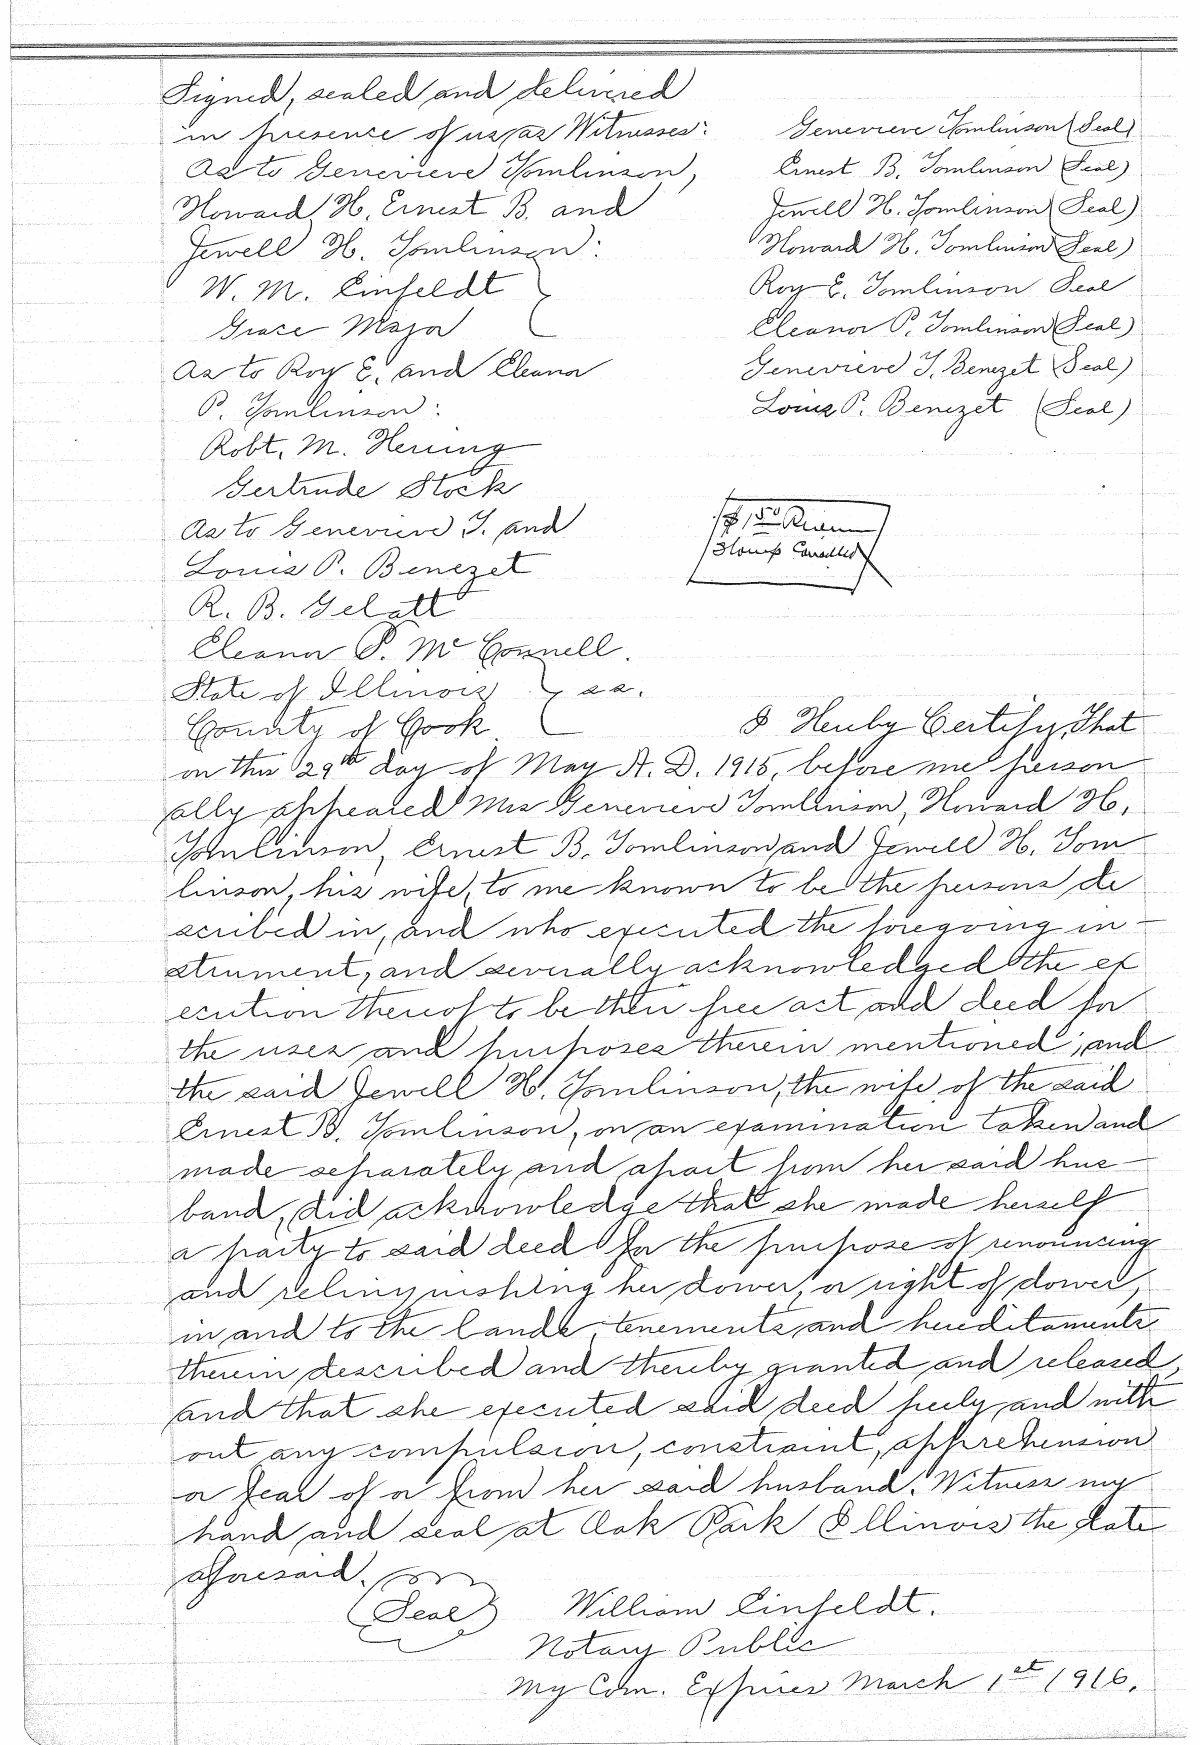 Signed, sealed and delivered
in presence of us as Witnesses:
As to Genevieve Tomlinson,
Howard H. Ernest B. and
Jewell H. Tomlinson:
W. M. Einfeldt
Grace Major
As to Roy E. and Eleanor
P. Tomlinson:
Robt. M. Herring
Gertrude Stock
As to Genevieve T. and
Louis P. Benezet
R. B. Gelatt
Eleanor P. McConnell.
Genevieve Tomlinson (Seal)
Ernest B. Tomlinson (Seal)
Jewell H. Tomlinson (Seal)
Howard H. Tomlinson (Seal)
Roy E. Tomlinson Seal
Eleanor P. Tomlinson (Seal)
Genevieve T. Benezet (Seal)
Louis P. Benezet (Seal)
$1.50 Revenue
Stamps Cancelled
State of Illinois } ss.
County of Cook
I Hereby Certify, That
on this 29th day of May A. D. 1915, before me person
ally appeared Mrs Genevieve Tomlinson, Howard H.
Tomlinson, Ernest B. Tomlinson and Jewell H. Tom
linson, his wife, to me known to be the persons de
scribed in, and who executed the foregoing in-
strument, and severally acknowledged the ex
ecution thereof to be their free act and deed for
the uses and purposes therein mentioned; and
the said Jewell H. Tomlinson, the wife of the said
Ernest B. Tomlinson, on an examination taken and
made separately and apart from her said hus-
band, did acknowledge that she made herself
a party to said deed for the purpose of renouncing
and relinquishing her dower, or right of dower,
in and to the lands, tenements and hereditaments
therein described and thereby granted and released,
and that she executed said deed freely and with
out any compulsion, constraint, apprehension
or fear of or from her said husband. Witness my
hand and seal at Oak Park Illinois the date
aforesaid.
(Seal) William Einfeldt.
Notary Public
My Com. Expires March 1st 1916.